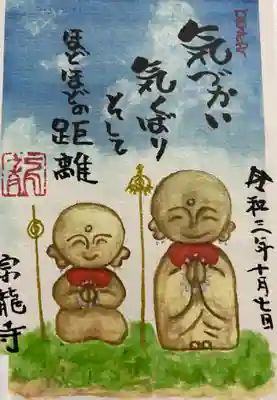 気づかい
気くばり
そして
ほどほどの距離
令和三年十月七日
宗龍寺